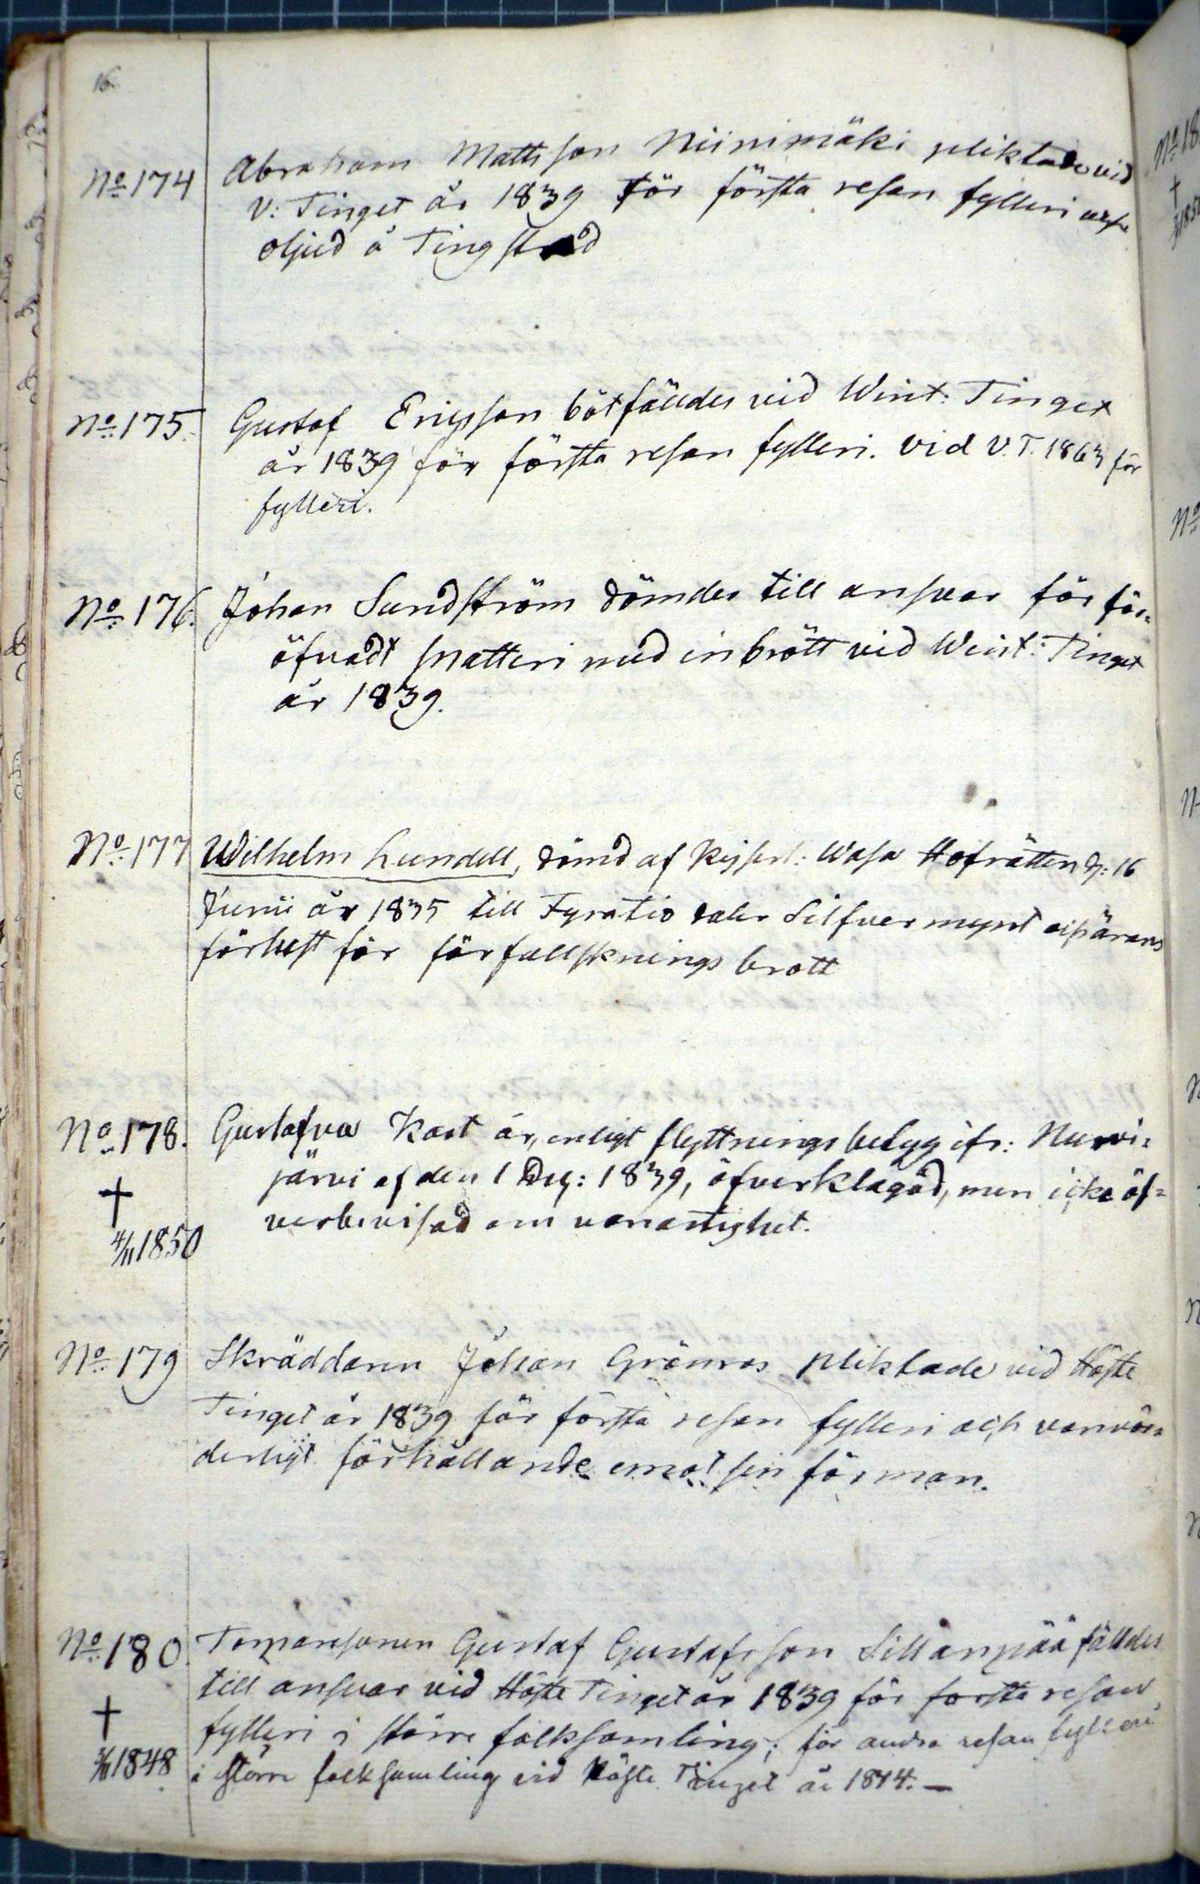 16.
No 174 Abraham Mattsson Niinimäki pliktade vid
V: Tinget år 1839 för första resan fylleri och
oljud å Tingstad
No 175. Gustaf Ericsson bötfälldes vid Wint: Tinget
år 1839 för första resan fylleri. vid V.T. 1863 för
fylleri.
No 176. Johan Sundström dömdes till ansvar för för-
öfvadt snatteri med inbrått vid Wint: Tinget
år 1839.
No 177 Wilhelm Lundell, dömd af Kejserl: Wasa Hofrätten d: 16
Junii år 1835 till Fyratio daler Silfver mynt och ärans
förlust för förfallsknings brott
No 178. Gustafva Kast är, enligt flyttningsbetyg ifr: Nurmi-
järvi af den 1 Dec: 1839, öfverklagad, men icke öf-
verbevisad om vanartighet.
†
4/11 1850
No 179 Skräddaren Johan Grönroos pliktade vid Höste
Tinget år 1839 för första resan fylleri och vanvör-
derligt förhållande emot sin förman.
No 180 Torparesonen Gustaf Gustafsson Sillanpää fälldes
till ansvar vid Höste Tinget år 1839 för första resan
fylleri i större folksamling; för andra resan fylleri
i större folksamling vid Höste Tinget år 1844. —
†
1848